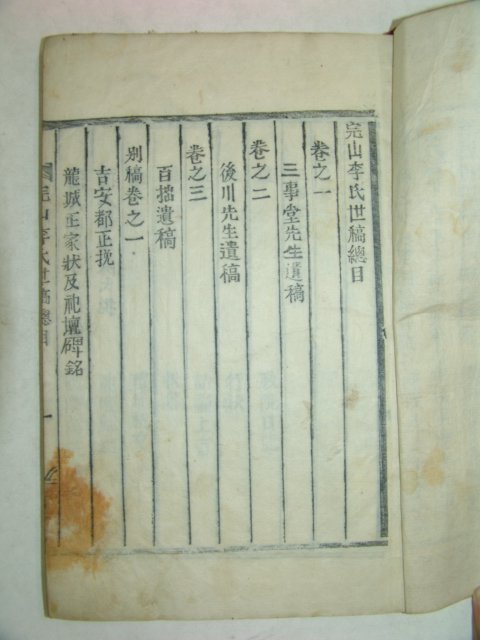 完山李氏世稿總目
卷之一
三事堂先生遺稿
卷之二
後川先生遺稿
卷之三
百拙遺稿
別稿卷之一
吉安都正挽
龍城正家狀及祀壇碑銘
完山李氏世稿總目
一